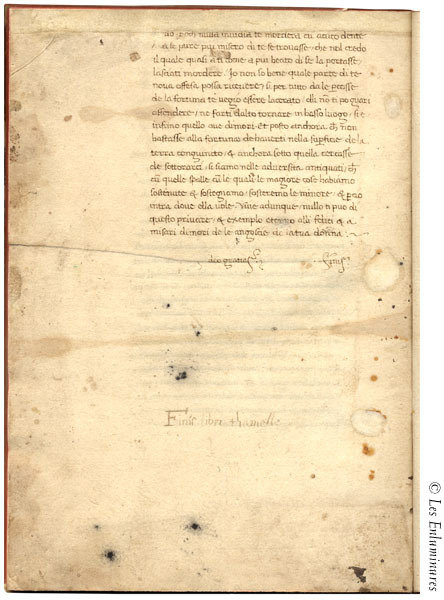 do. poch nulla inuidia te mordera cū acuto dente
/ & se pure piu misero di te se trouasse / che nol credo
il quale quasi a ti como a piu beato di se la portasse
lasciati mordere. Jo non so bene quale parte di te
noua offesa possa riceuere / si per tutto da le
de la fortuna te uegio essere lacerato / elli nō ti po guari
offendere / ne farti dalto tornare in basso luogo / si e
infimo quello oue dimori. Et posto anchora ch̄ non
bastasse alla fortuna de hauerti nella supficie de la
terra & anchora sotto quella cercasse
de sotterarci / si siamo nelle aduersita antiquati / ch̄
cū quelle spalle cū le quali le magiore cose habiamo
sostenute & sostegniamo / sosteremo le minore / &
intra doue ella uole. Viue adunque / nullo ti puo di
questo priuare / & exemplo eterno alli felici & a
miseri dimori de le angosie de la tua donna.
deo gratias finis
Finis libri
© Les Enluminures